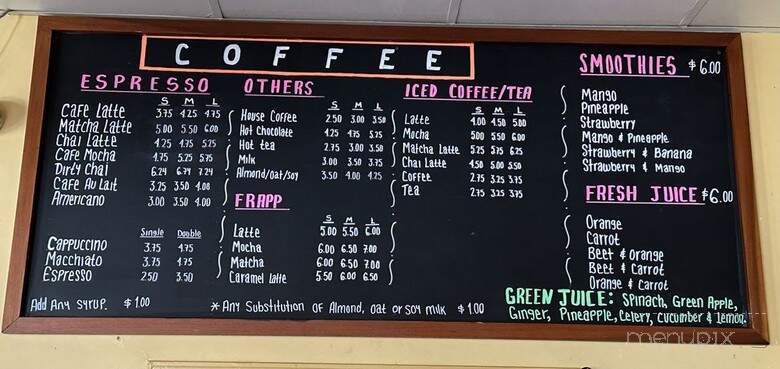 COFFEE
ESPRESSO
S M L
Cafe Latte 3.75 4.25 4.75
Matcha Latte 5.00 5.50 6.00
Chai Latte 4.25 4.75 5.25
Cafe Mocha 4.75 5.25 5.75
Dirty Chai 6.24 6.74 7.24
Cafe Au Lait 3.25 3.50 4.00
Americano 3.00 3.50 4.00
Single Double
Cappuccino 3.75 4.75
Macchiato 3.75 4.75
Espresso 2.50 3.50
Add Any Syrup. $1.00
OTHERS
S M L
House Coffee 2.50 3.00 3.50
Hot Chocolate 4.25 4.75 5.25
Hot tea 2.75 3.00 3.50
Milk 3.00 3.50 3.75
Almond/oat/soy 3.50 4.00 4.25
FRAPP
S M L
Latte 5.00 5.50 6.00
Mocha 6.00 6.50 7.00
Matcha 6.00 6.50 7.00
Caramel Latte 5.50 6.00 6.50
*Any Substitution of Almond, oat or soy milk $1.00
ICED COFFEE/TEA
S M L
Latte 4.00 4.50 5.00
Mocha 5.00 5.50 6.00
Matcha Latte 5.25 5.75 6.25
Chai Latte 4.50 5.00 5.50
Coffee 2.75 3.25 3.75
Tea 2.75 3.25 3.75
SMOOTHIES $6.00
Mango
Pineapple
Strawberry
Mango & Pineapple
Strawberry & Banana
Strawberry & Mango
FRESH JUICE $6.00
Orange
Carrot
Beet & Orange
Beet & Carrot
Orange & Carrot
GREEN JUICE: Spinach, Green Apple,
Ginger, Pineapple, Celery, cucumber & lemon.
menupix